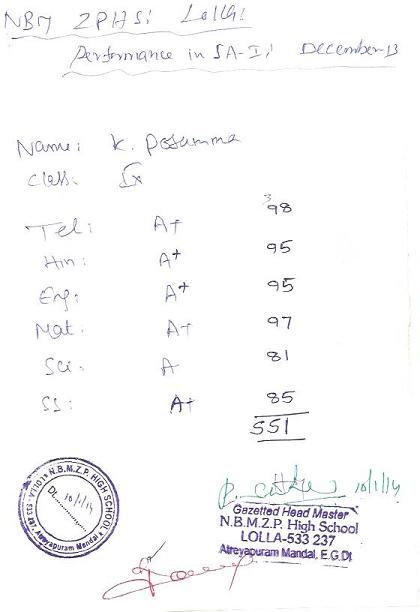 NBM ZPHS; Lolla;
Performance in SA-I; December-13
Name: K. Posamma
Class: IX
Tel: A+ 98
Hin: A+ 95
Eng: A+ 95
Mat: A+ 97
Sci: A 81
SS: A+ 85
551
N.B.M.Z.P. HIGH SCHOOL
LOLLA-533 237, Atreyapuram Mandal
Dt. 10/1/14
10/1/14
Gazetted Head Master
N.B.M.Z.P. High School
LOLLA-533 237
Atreyapuram Mandal, E.G.Dt